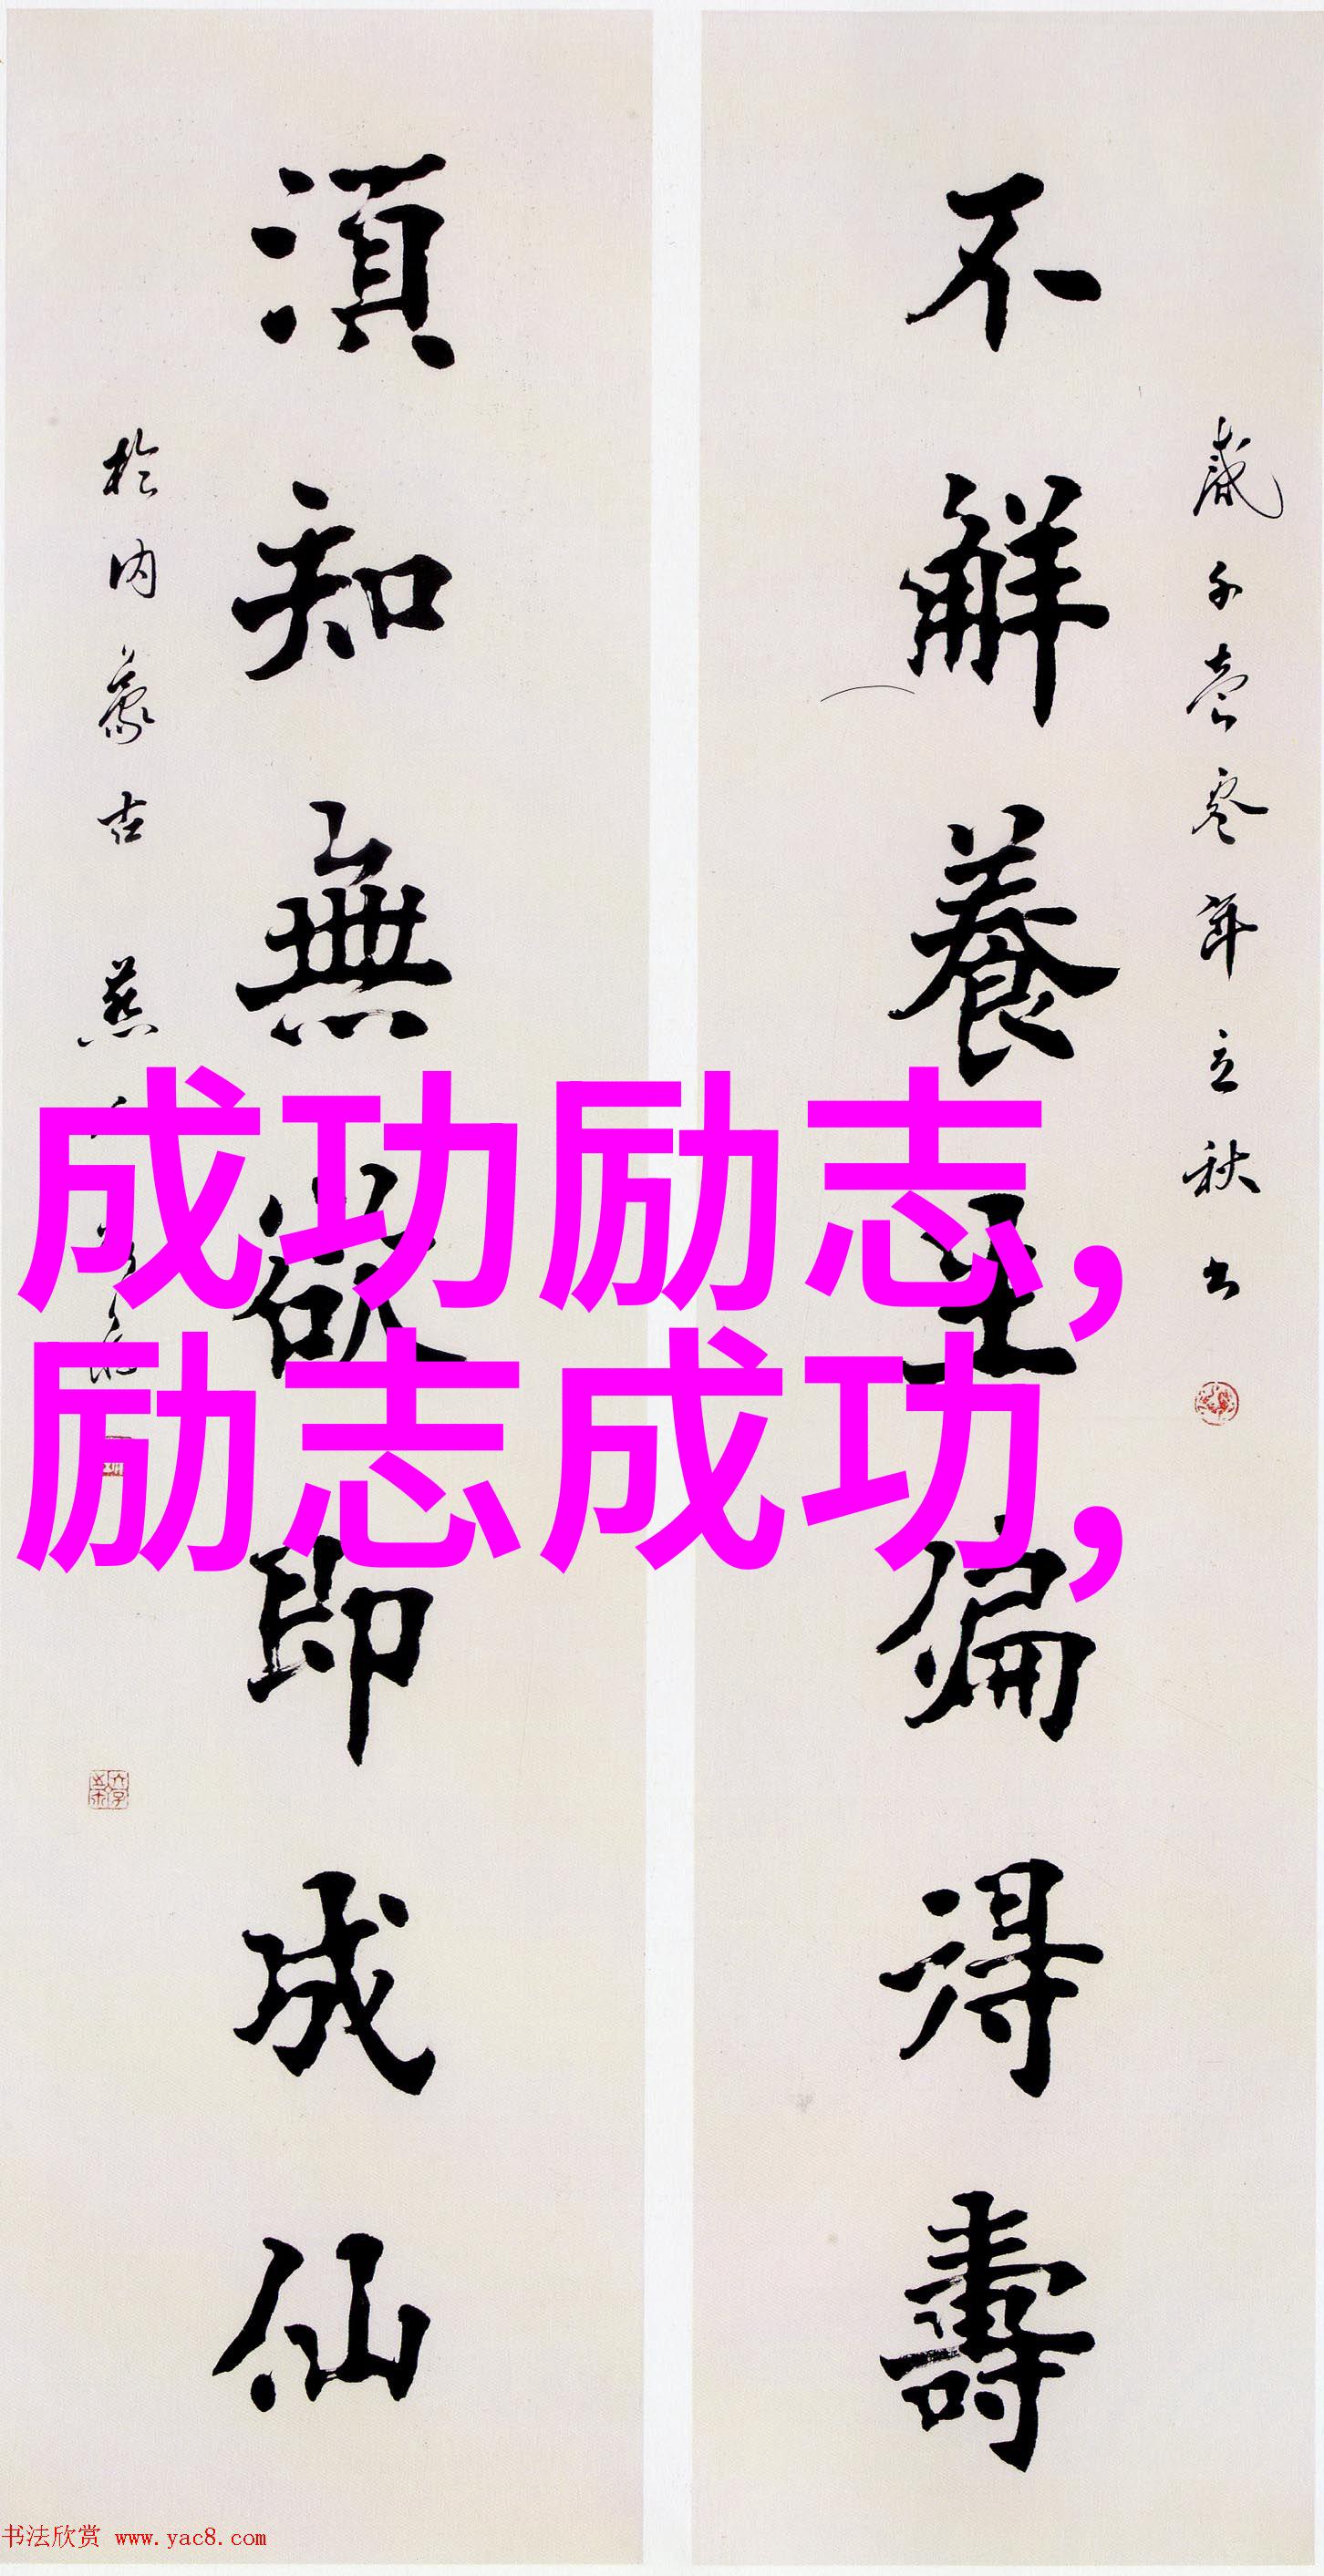 歲在壹零年立秋书
不解養生偏得壽
須知無欲即成仙
於内蒙古
成功励志,
励志成功,
书法欣赏 www.yac8.com